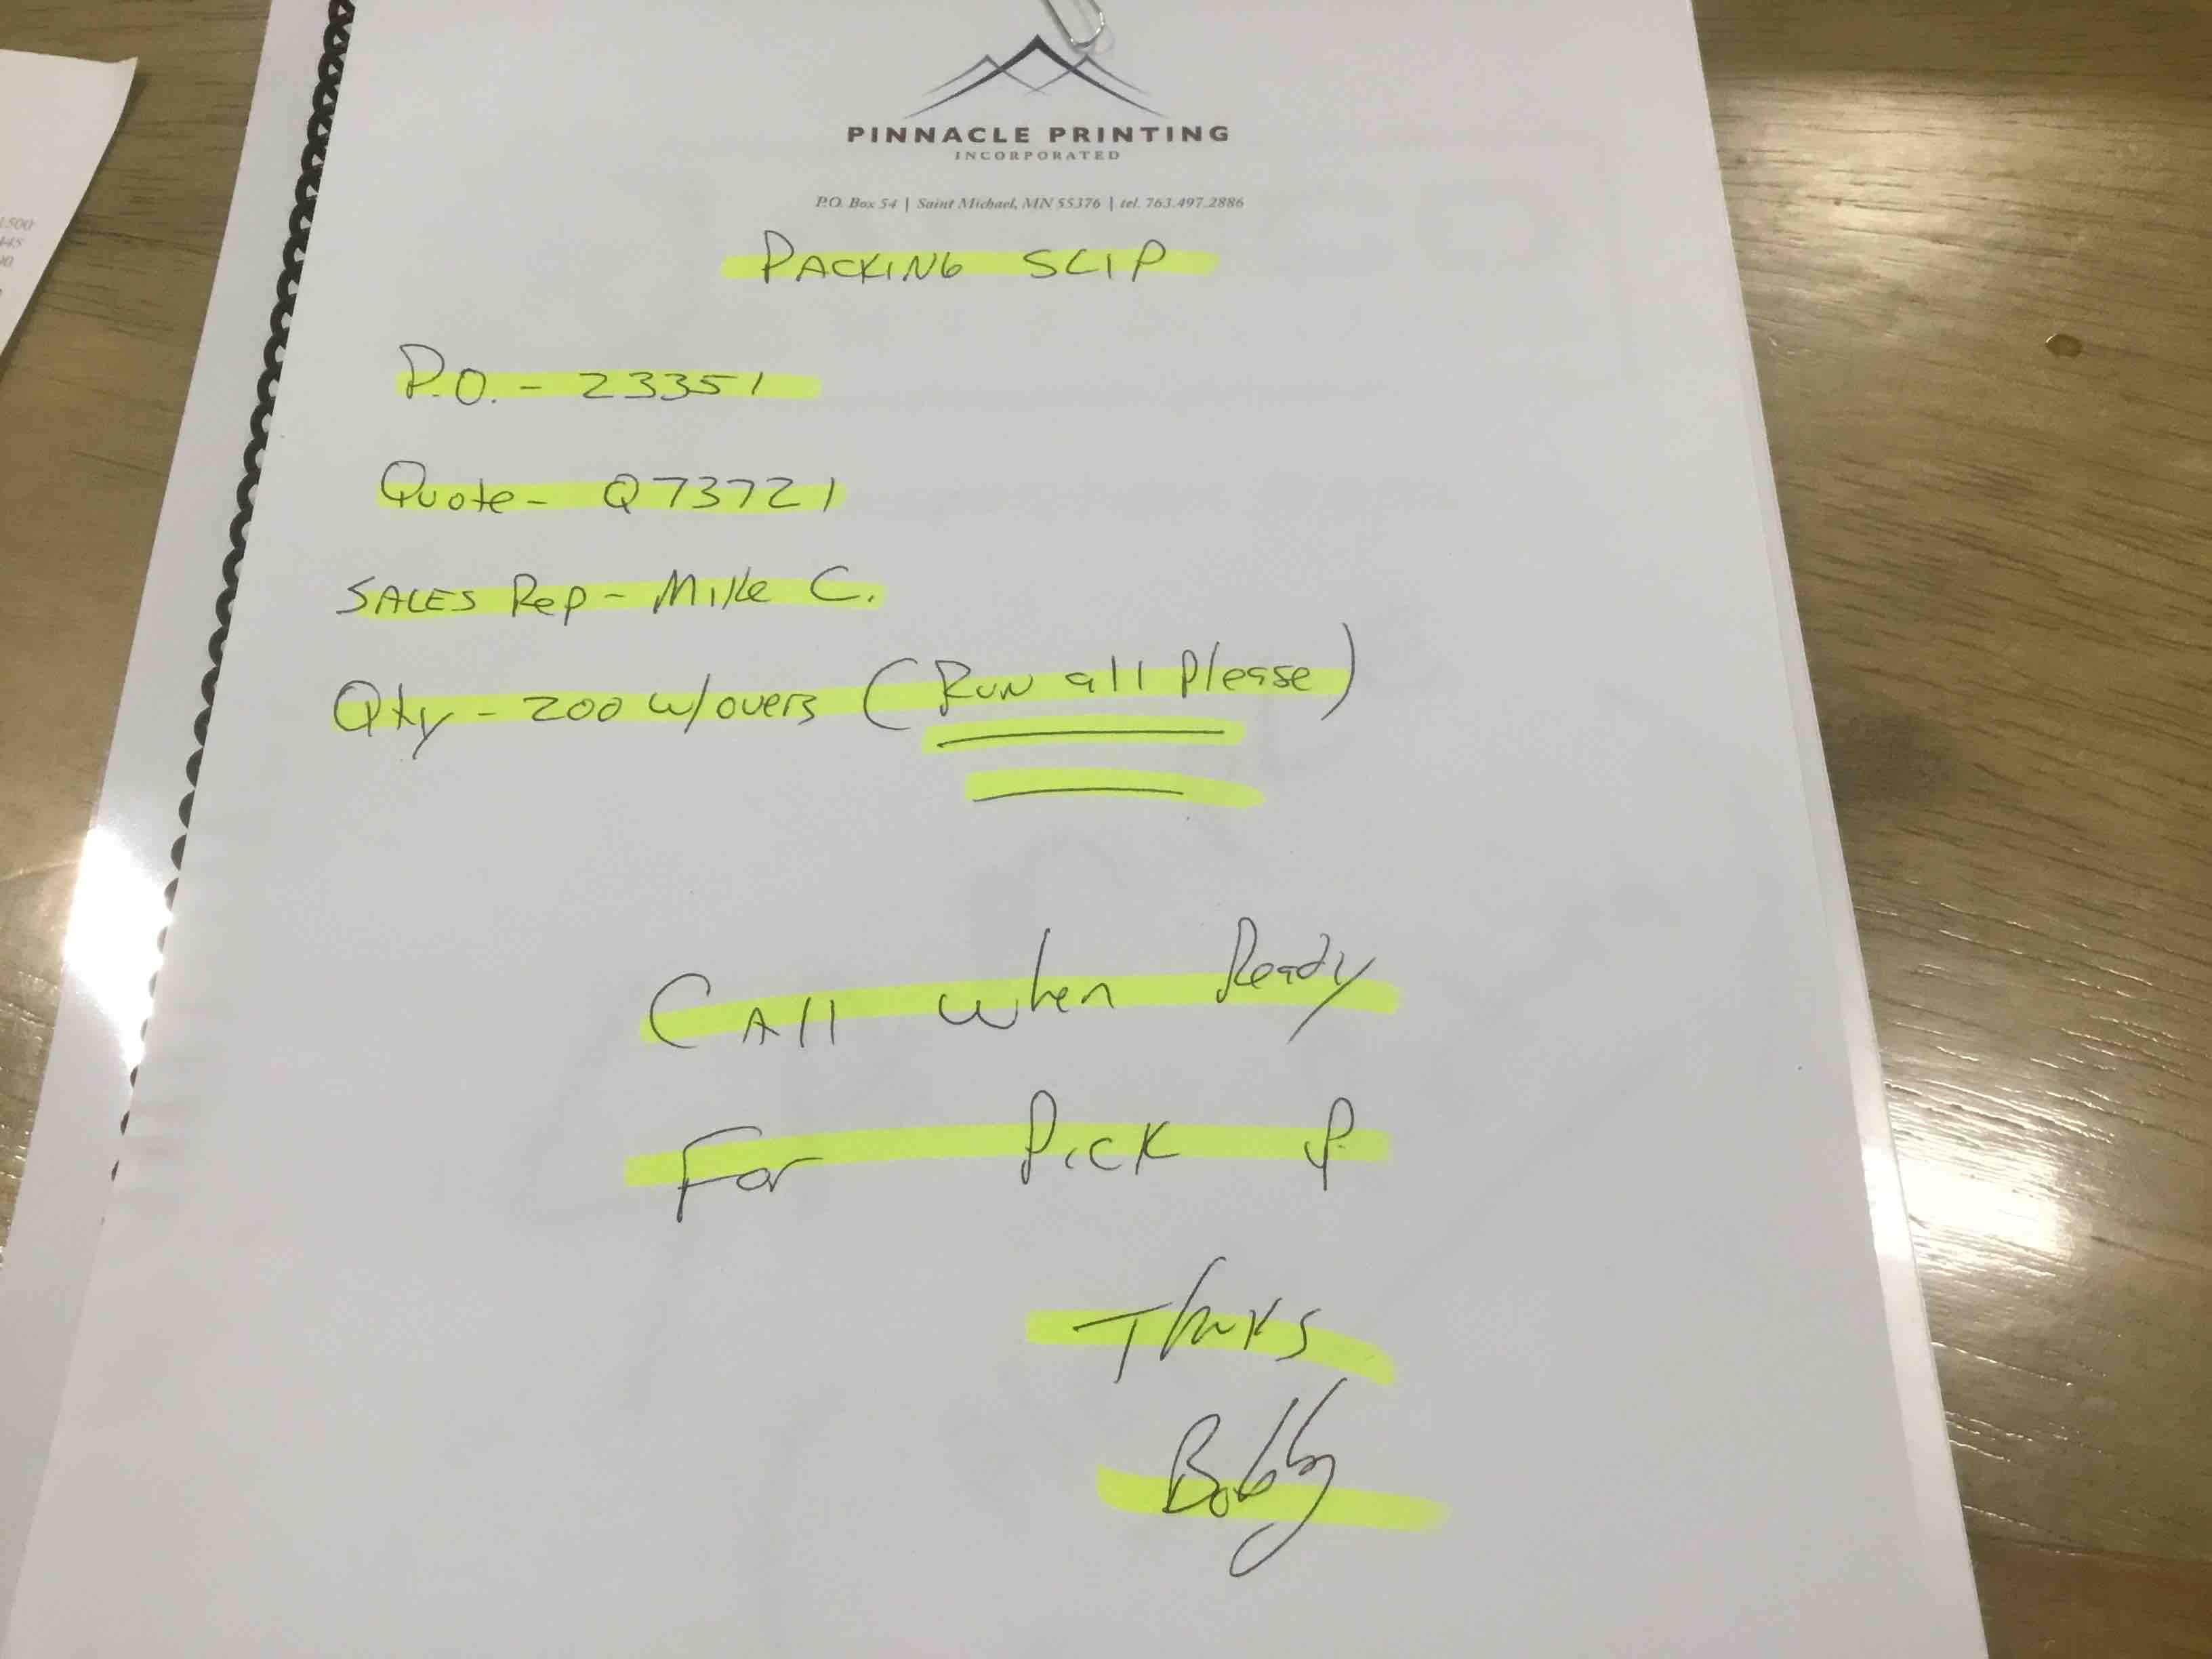 PINNACLE PRINTING
INCORPORATED
P.O. Box 54 | Saint Michael, MN 55376 | tel. 763.497.2886
PACKING SLIP
P.O. - 23351
Quote - Q73721
SALES Rep - Mike C.
Qty - 200 w/overs (Run all Please)
CAll when Ready
For Pick up
Thnks
Bobby
1500
445